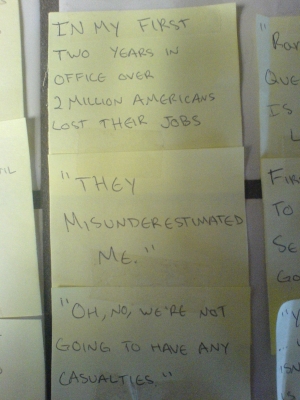 IN MY FIRST
TWO YEARS IN
OFFICE OVER
2 MILLION AMERICANS
LOST THEIR JOBS
"THEY
MISUNDERESTIMATED
ME."
"OH, NO, WE'RE NOT
GOING TO HAVE ANY
CASUALTIES."
QUE
IS
FIR
TO
SE
GO